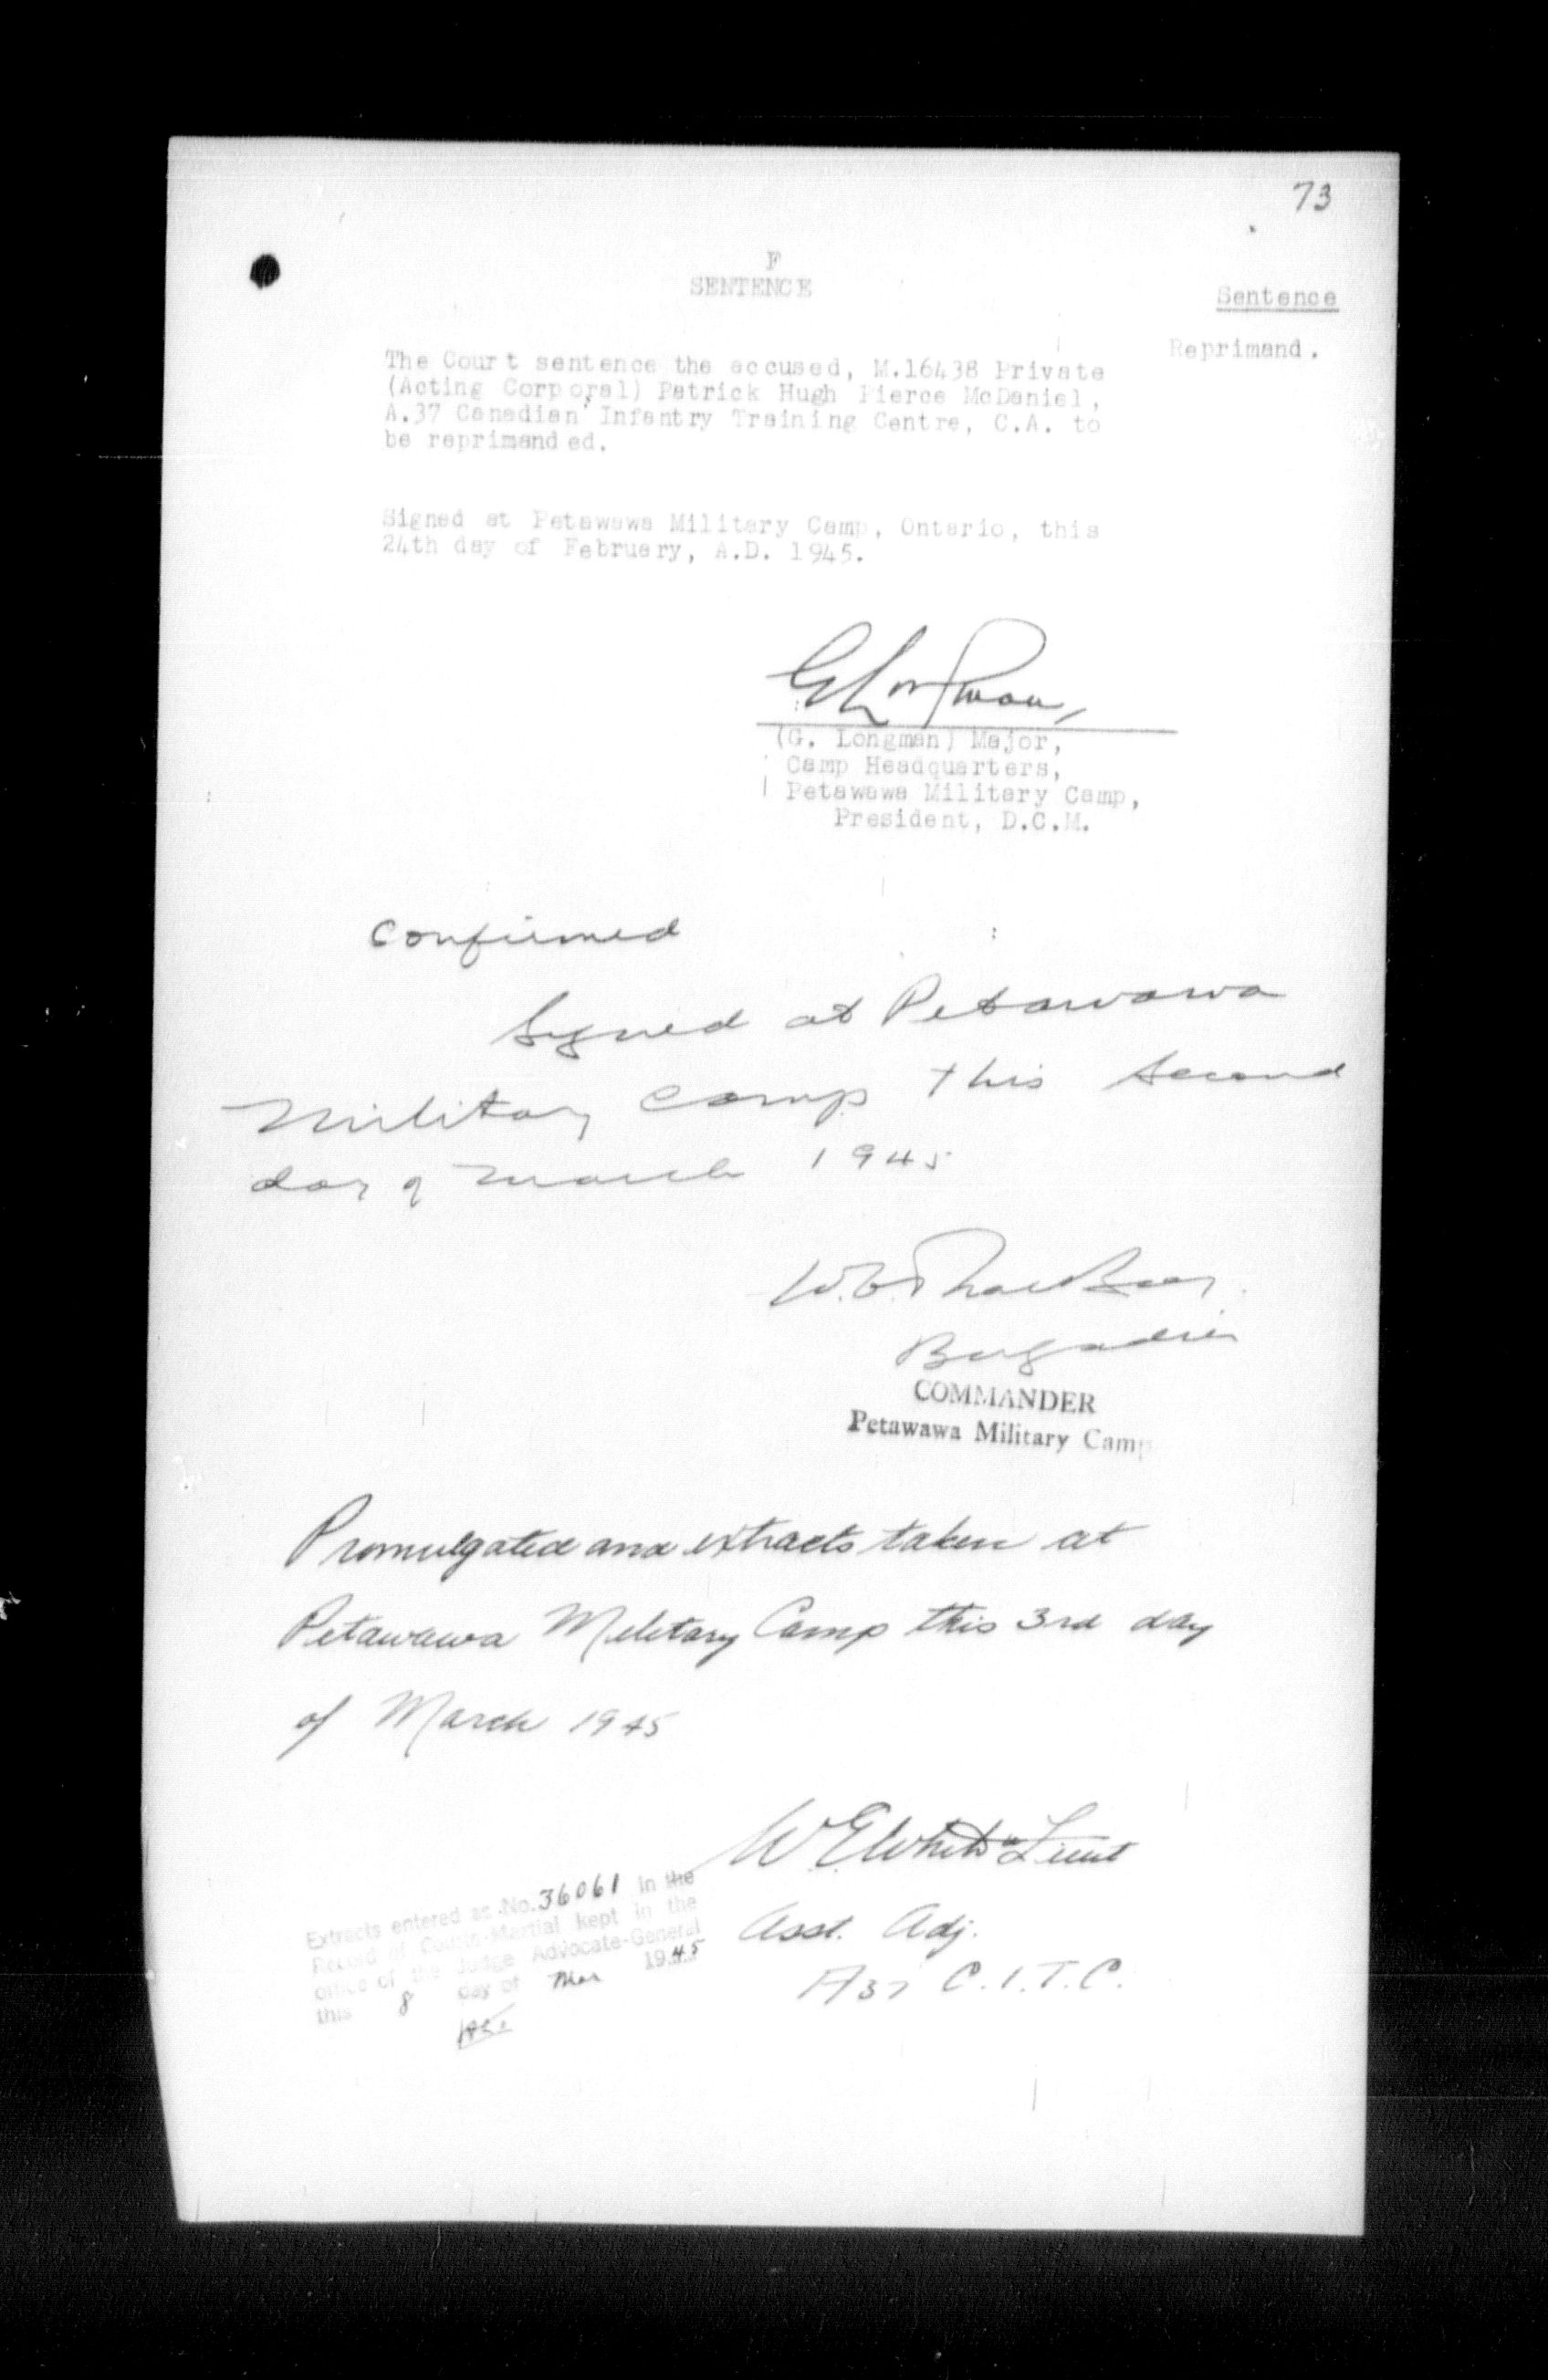 73
F
SENTENCE
Sentence
Reprimand.
The Court sentence the accused, M.16438 Private
(Acting Corporal) Patrick Hugh Pierce McDaniel,
A.37 Canadian Infantry Training Centre, C.A. to
be reprimanded.
Signed at Petawawa Military Camp, Ontario, this
24th day of February, A.D. 1945.
(G. Longman) Major,
Camp Headquarters,
Petawawa Military Camp,
President, D.C.M.
Confirmed
Signed at Petawawa
Military Camp this second
day of March 1945
Brigadier
COMMANDER
Petawawa Military Camp
Promulgated and extracts taken at
Petawawa Military Camp this 3rd day
of March 1945
W E White Lieut
Asst. Adj.
A37 C.I.T.C.
Extracts entered as No. 36061 in the
Record of Courts-Martial kept in the
office of the Judge Advocate-General
this 8 day of Mar 1945